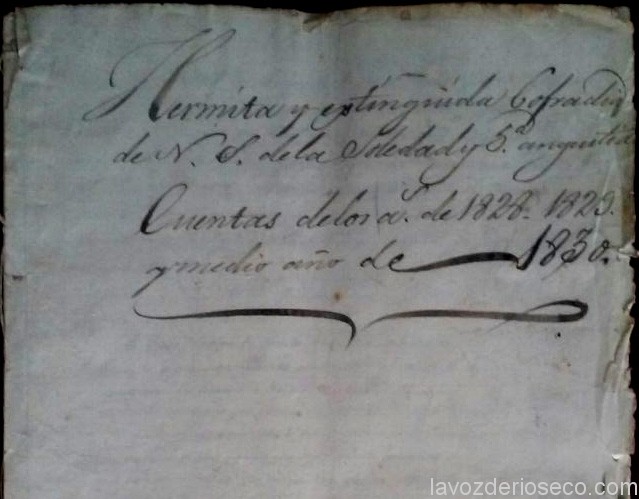 Hermita y extinguida Cofradia
de N. S. de la Soledad y 5.ª angustia
Cuentas de los a.s de 1828. 1829.
y medio año de 1830.
lavozderioseco.com